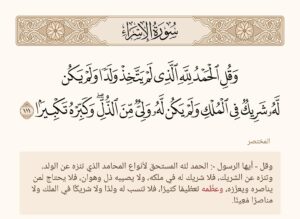 سُورَةُ الإِسْرَاءِ
وَقُلِ الْحَمْدُ لِلَّهِ الَّذِي لَمْ يَتَّخِذْ وَلَدًا وَلَمْ يَكُن
لَّهُ شَرِيكٌ فِي الْمُلْكِ وَلَمْ يَكُن لَّهُ وَلِيٌّ مِّنَ الذُّلِّ ۖ وَكَبِّرْهُ تَكْبِيرًا ١١١
المختصر
وقل - أيها الرسول -: الحمد لله المستحق لأنواع المحامد الذي تنزه عن الولد،
وتنزه عن الشريك، فلا شريك له في ملكه، ولا يصيبه ذل وهوان، فلا يحتاج لمن
يناصره ويعززه، وعظّمه تعظيمًا كثيرًا، فلا تنسب له ولدًا ولا شريكًا في الملك ولا
مناصرًا مُعِينًا.